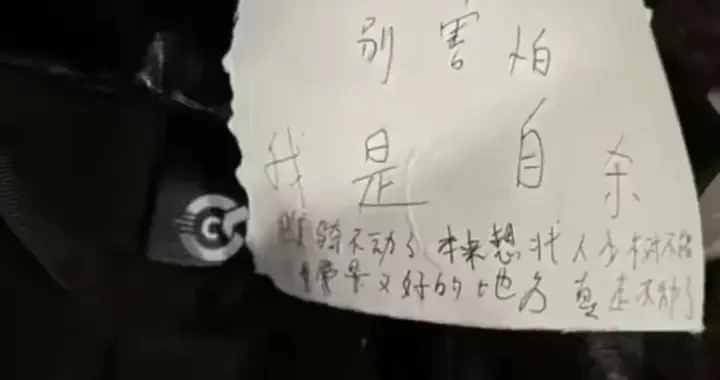 别害怕
我是自杀
骑不动了 本来想找人少
景又好的地方 真走不动了